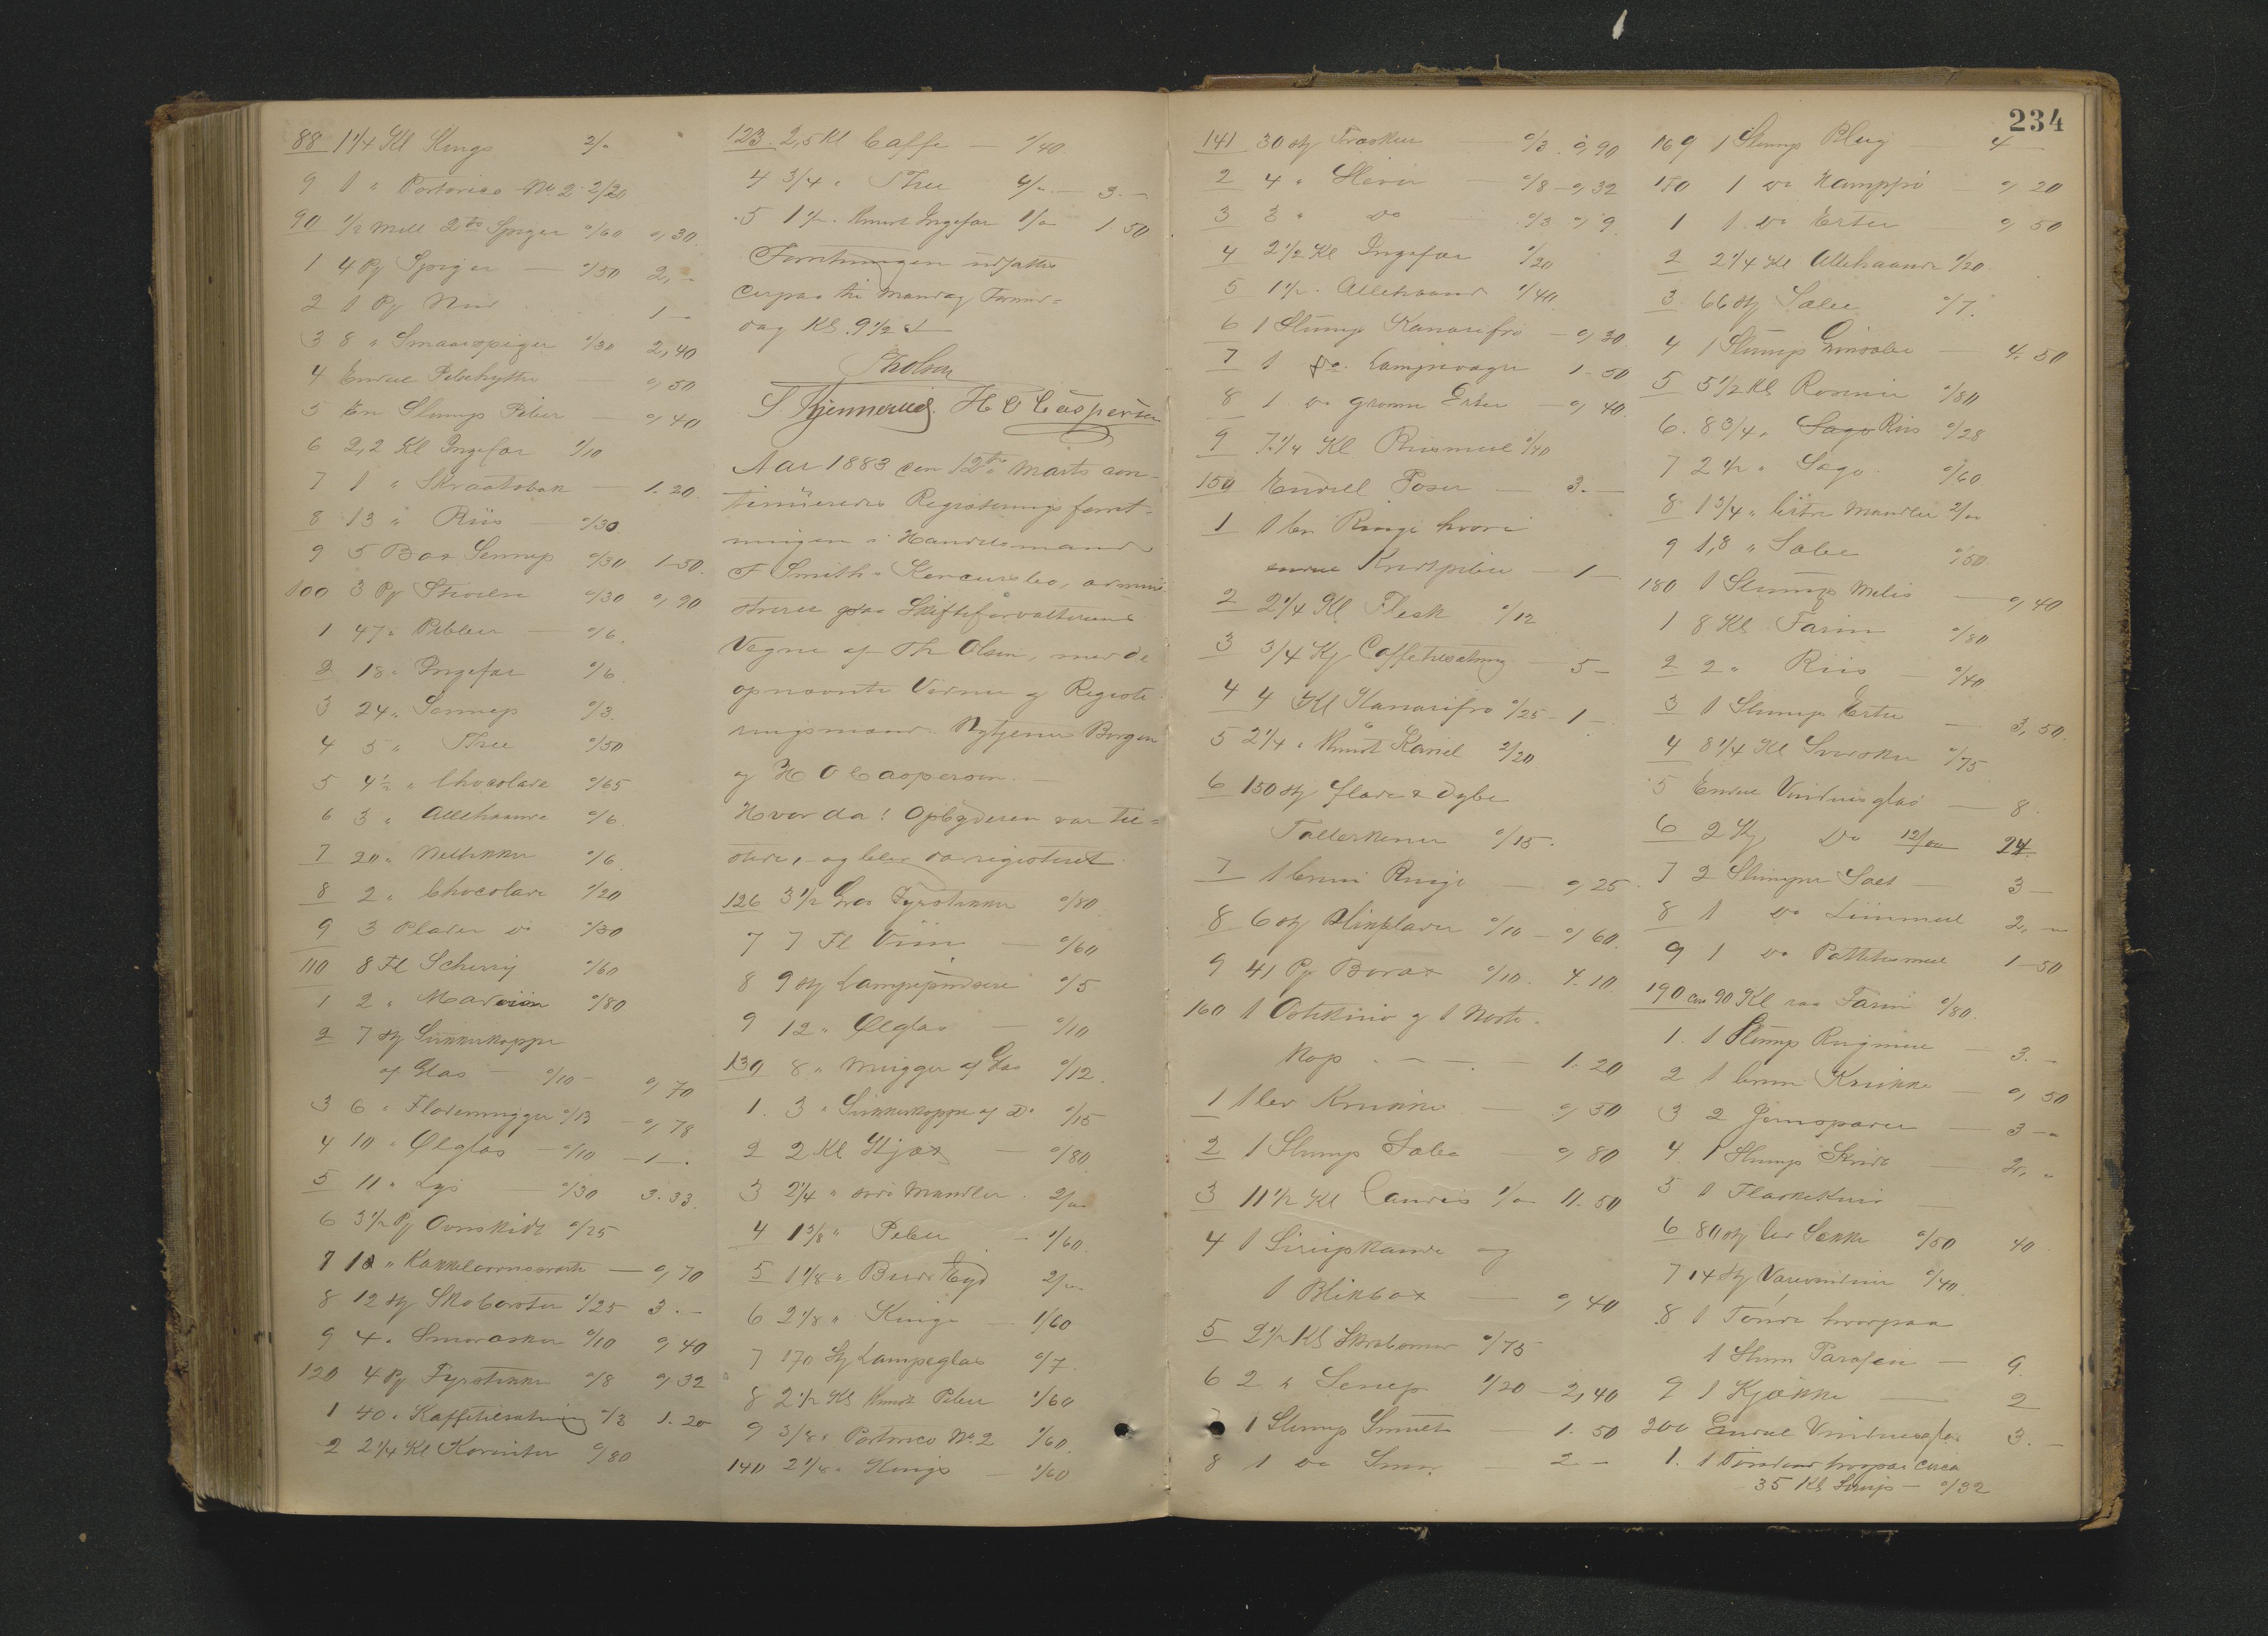 88 1 1/4 Kl Kings 2/"
9 1 " Portorico No 2 2/20
90 1/2 Mill 2 to Spiger %60 0,30.
1 4 Pg Spiger — %50 2,—
2 1 Pg 1—
3 8 " Smaaspiger %30 2,40
4 Endel Pibehytter — 0,50
5 En Slump Piber — 0,40
6 2,2 Kl Ingefær 1/10
7 1 " Skraatobak — 1.20
8 13 " Riis — %30
9 5 Box Sennep %30 1-50.
100 3 Pg %30 0,90
1 47 " Pebber — %6.
2 18 " Ingefær %6
3 24 " Sennep %3.
4 5 " Thee %50
5 4 1/2 " Chocolade %65
6 3 " Allehaande %6.
7 20 " Nellikker %6
8 2 " Chocolade 1/20
9 3 Plader do %30
110 8 Fl Scherry %60
1 2 " Madeira %80
2 7 St Sukkerkopper
af Glas — %10 — 0,70
3 6 " Flødemugger %13 — 0,78
4 10 " Ølglas — %10 — 1—.
5 11 " Lys — %30 3.33.
6 3 1/2 Pg Ovnskidt %25
7 10 " Kakkelovnssværte — 0,70
8 12 St Skobørster %25 3.—
9 4 " Smøræsker %10 0,40
120 4 Pg Fyrstikker %8 0,32
1 40 " Kaffetilsætning %3 1.20
2 2 1/4 Kl Korinter %80
123. 2,5 Kl Caffe — 1/40
4 3/4 " Thee 4/" — 3.—
5 1 1/2 " Knust Ingefær 1/" 1.50
Forretningen udsattes
derpaa til Mandag Formid=
dag Kl. 9 1/2
Th Olsen
S. Kjennerud. H O Caspersen
Aar 1883 den 12te Marts con-
tinueredes Registreringsforret-
ningen i Handelsmand
F Smiths Konkursbo, admini-
streret paa Skifteforvalterens
Vegne af Th Olsen, med de
opnævnte Vidner og Registe-
ringsmænd. Borgen
og H O Caspersen. —
Hvor da! Opbyderen var til=
stede, og blev da registreret.
126 3 1/2 Gros Fyrstikker %80
7 7 Fl Viin — %60
8 9 St Lampepudsere %5
9 12 " Ølglas — %10
130 8 " Mugger af Glas %12.
1. 3 " Sukkerkopper af Do %15
2 2 Kl — %80.
3 2 1/4 " søde Mandler. 2/"
4 1 3/8 " Peber — 1/60.
5 1 1/8 " 2/"
6 2 1/8 " Kings — 1/60
7 170 St Lampeglas %7.
8 2 1/2 Kl Knust Peber 1/60
9 3/8 " Portorico No 2 1/60.
140 2 1/8 " Kings — 1/60
234
141 30 St Træskeer — %3 0,90
2 4 " Sleiver — %8 — 0,32
3 3 " do %3 0,9.
4 2 1/2 Kl Ingefær 1/20
5 1 1/2 " Allehaande 1/40.
6 1 Slump Kanarifrø — 0,30.
7 1 do. Lampevæger 1-50
8 1 do grønne Erter — 0,40.
9 7 1/4 Kl Riismeel %40
150 Endell Poser — 3.—
1 1 ler Ringe hvori
Kridtpiber — 1—
2 2 1/4 Kl Flesk %12
3 3/4 Kg Caffetilsætning — 5—
4 4 Kl Kanarifrø %25 — 1—
5 2 1/4 " Knust Kanel 2/20
6 150 St flade & dybe
Tallerkener %15.
7 1 Ringe — 0,25.
8 6 St Blikplader %10 — 0,60.
9 41 Pg Borax %10. 4.10.
160 1 Ostekniv og 1
Kop . — — . 1.20
1 1 ler Krukke — 0,50
2 1 Slump Sæbe — 0,80
3 11 1/2 Kl Candis 1/" 11.50
4 1 Sirupskande og
1 Blikbox — 0,40
5 2 1/2 Kl %75
6 2 " Senep 1/20 — 2,40
1 Slump — 1.50
8 1 do Smør — 2.—
169 1 Slump Plug 4—
170 1 do Hampfrø — 0,20
1 1 do Erter — 0,50
2 2 1/4 Kl Allehaande 1/20
3. 66 St Sæbe %7.
4 1 Slump Grønsæbe — 4.50
5 5 1/2 Kl Rosiner %80
6. 8 3/4 " Sago Riis %28
7 2 1/2 " Sago. %60
8 1 3/4 " bittre Mandler 2/"
9 1,8 " Sæbe %50
180 1 Slump Melis — 0,40
1 8 Kl Farin %80
2 2 " Riis — %40
3 1 Slump Erter — 3,50.
4 8 1/4 Kl Svedsker %75
5 Endel Vinduesglas — 8.
6 2 Ks Do 12/00 24.
7 2 Slumper Salt — 3—
8 1 do Liinmeel 2,—
9 1 do Pottetesmeel 1-50
190 90 Kl raa Farin %80.
1. 1 Slump Rugmeel — 3.—
2 1 Krukke — 0,50
3 2 Jernspader — 3—
4. 1 Slump — 2,"
5 1 Flaskekurv —
6 80 St Sække %50 40.
7 14 St %40
8 1 Tønde hvorpaa
1 Slump Parafin — 9.
9 1 Kjøkke — 2
200 Endel Vinduesglas 3.—
1. 1 Tønde hvorpaa circa
35 Kl Sirup — %32